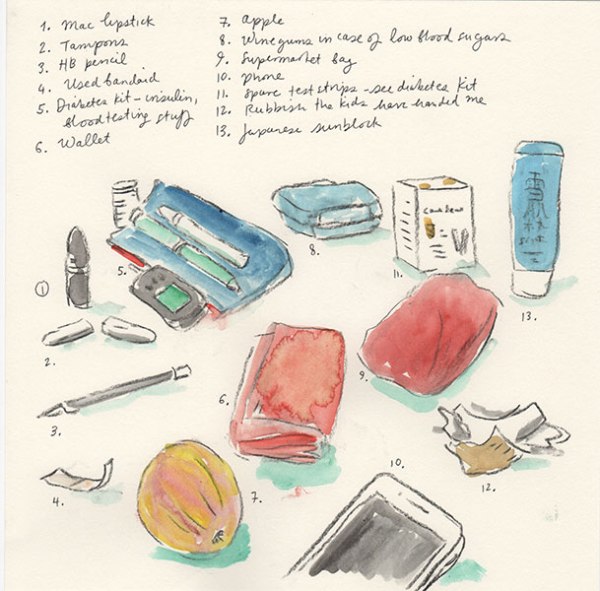 1. Mac lipstick
2. Tampons
3. HB pencil
4. Used bandaid
5. Diabetes kit - insulin,
blood testing stuff
6. Wallet
7. apple
8. Winegums in case of low blood sugars
9. Supermarket bag
10. phone
11. Spare test strips - see diabetes kit
12. Rubbish the kids have handed me
13. Japanese sunblock
1
5.
8.
11.
13.
2.
3.
6.
9.
4.
7.
10.
12.
雪